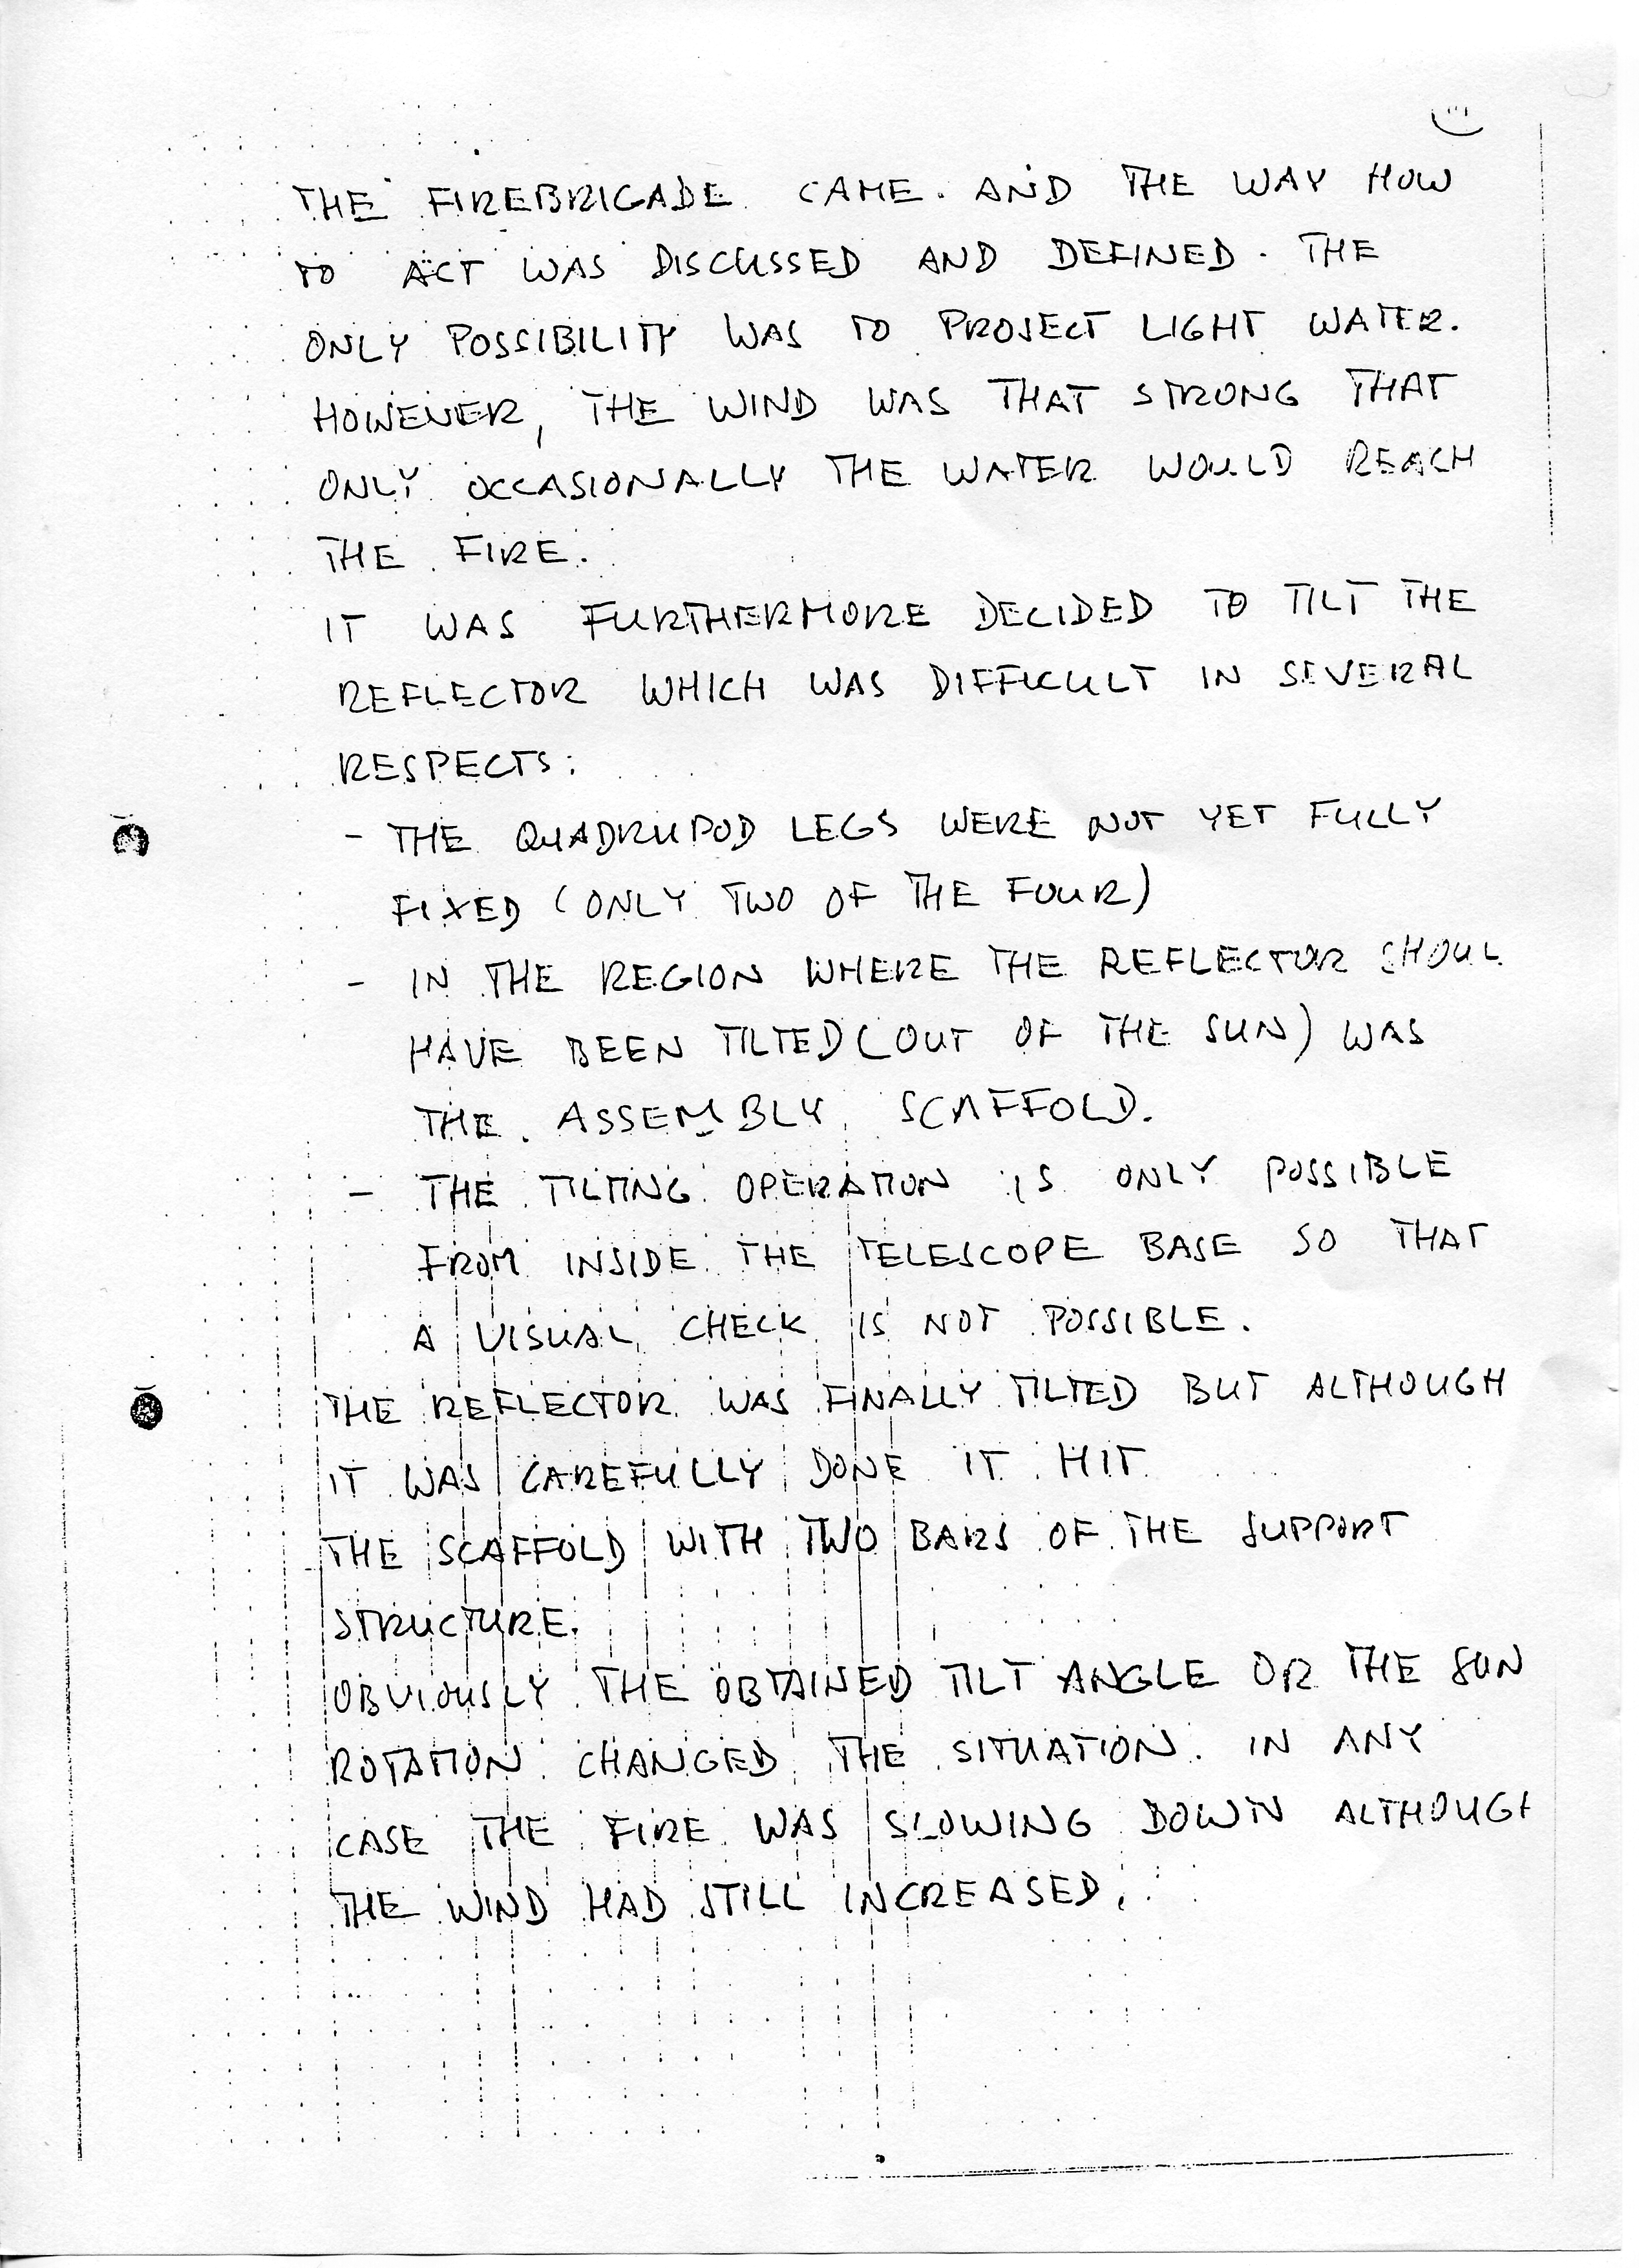 THE FIREBRIGADE CAME. AND THE WAY HOW
TO ACT WAS DISCUSSED AND DEFINED. THE
ONLY POSSIBILITY WAS TO PROJECT LIGHT WATER.
HOWEVER, THE WIND WAS THAT STRONG THAT
ONLY OCCASIONALLY THE WATER WOULD REACH
THE FIRE.
IT WAS FURTHERMORE DECIDED TO TILT THE
REFLECTOR WHICH WAS DIFFICULT IN SEVERAL
RESPECTS:
- THE QUADRUPOD LEGS WERE NOT YET FULLY
FIXED (ONLY TWO OF THE FOUR)
- IN THE REGION WHERE THE REFLECTOR SHOUL
HAVE BEEN TILTED (OUT OF THE SUN) WAS
THE ASSEMBLY SCAFFOLD.
- THE TILTING OPERATION IS ONLY POSSIBLE
FROM INSIDE THE TELESCOPE BASE SO THAT
A VISUAL CHECK IS NOT POSSIBLE.
THE REFLECTOR WAS FINALLY TILTED BUT ALTHOUGH
IT WAS CAREFULLY DONE IT HIT
THE SCAFFOLD WITH TWO BARS OF THE SUPPORT
STRUCTURE.
OBVIOUSLY THE OBTAINED TILT ANGLE OR THE SUN
ROTATION CHANGED THE SITUATION. IN ANY
CASE THE FIRE WAS SLOWING DOWN ALTHOUGH
THE WIND HAD STILL INCREASED.